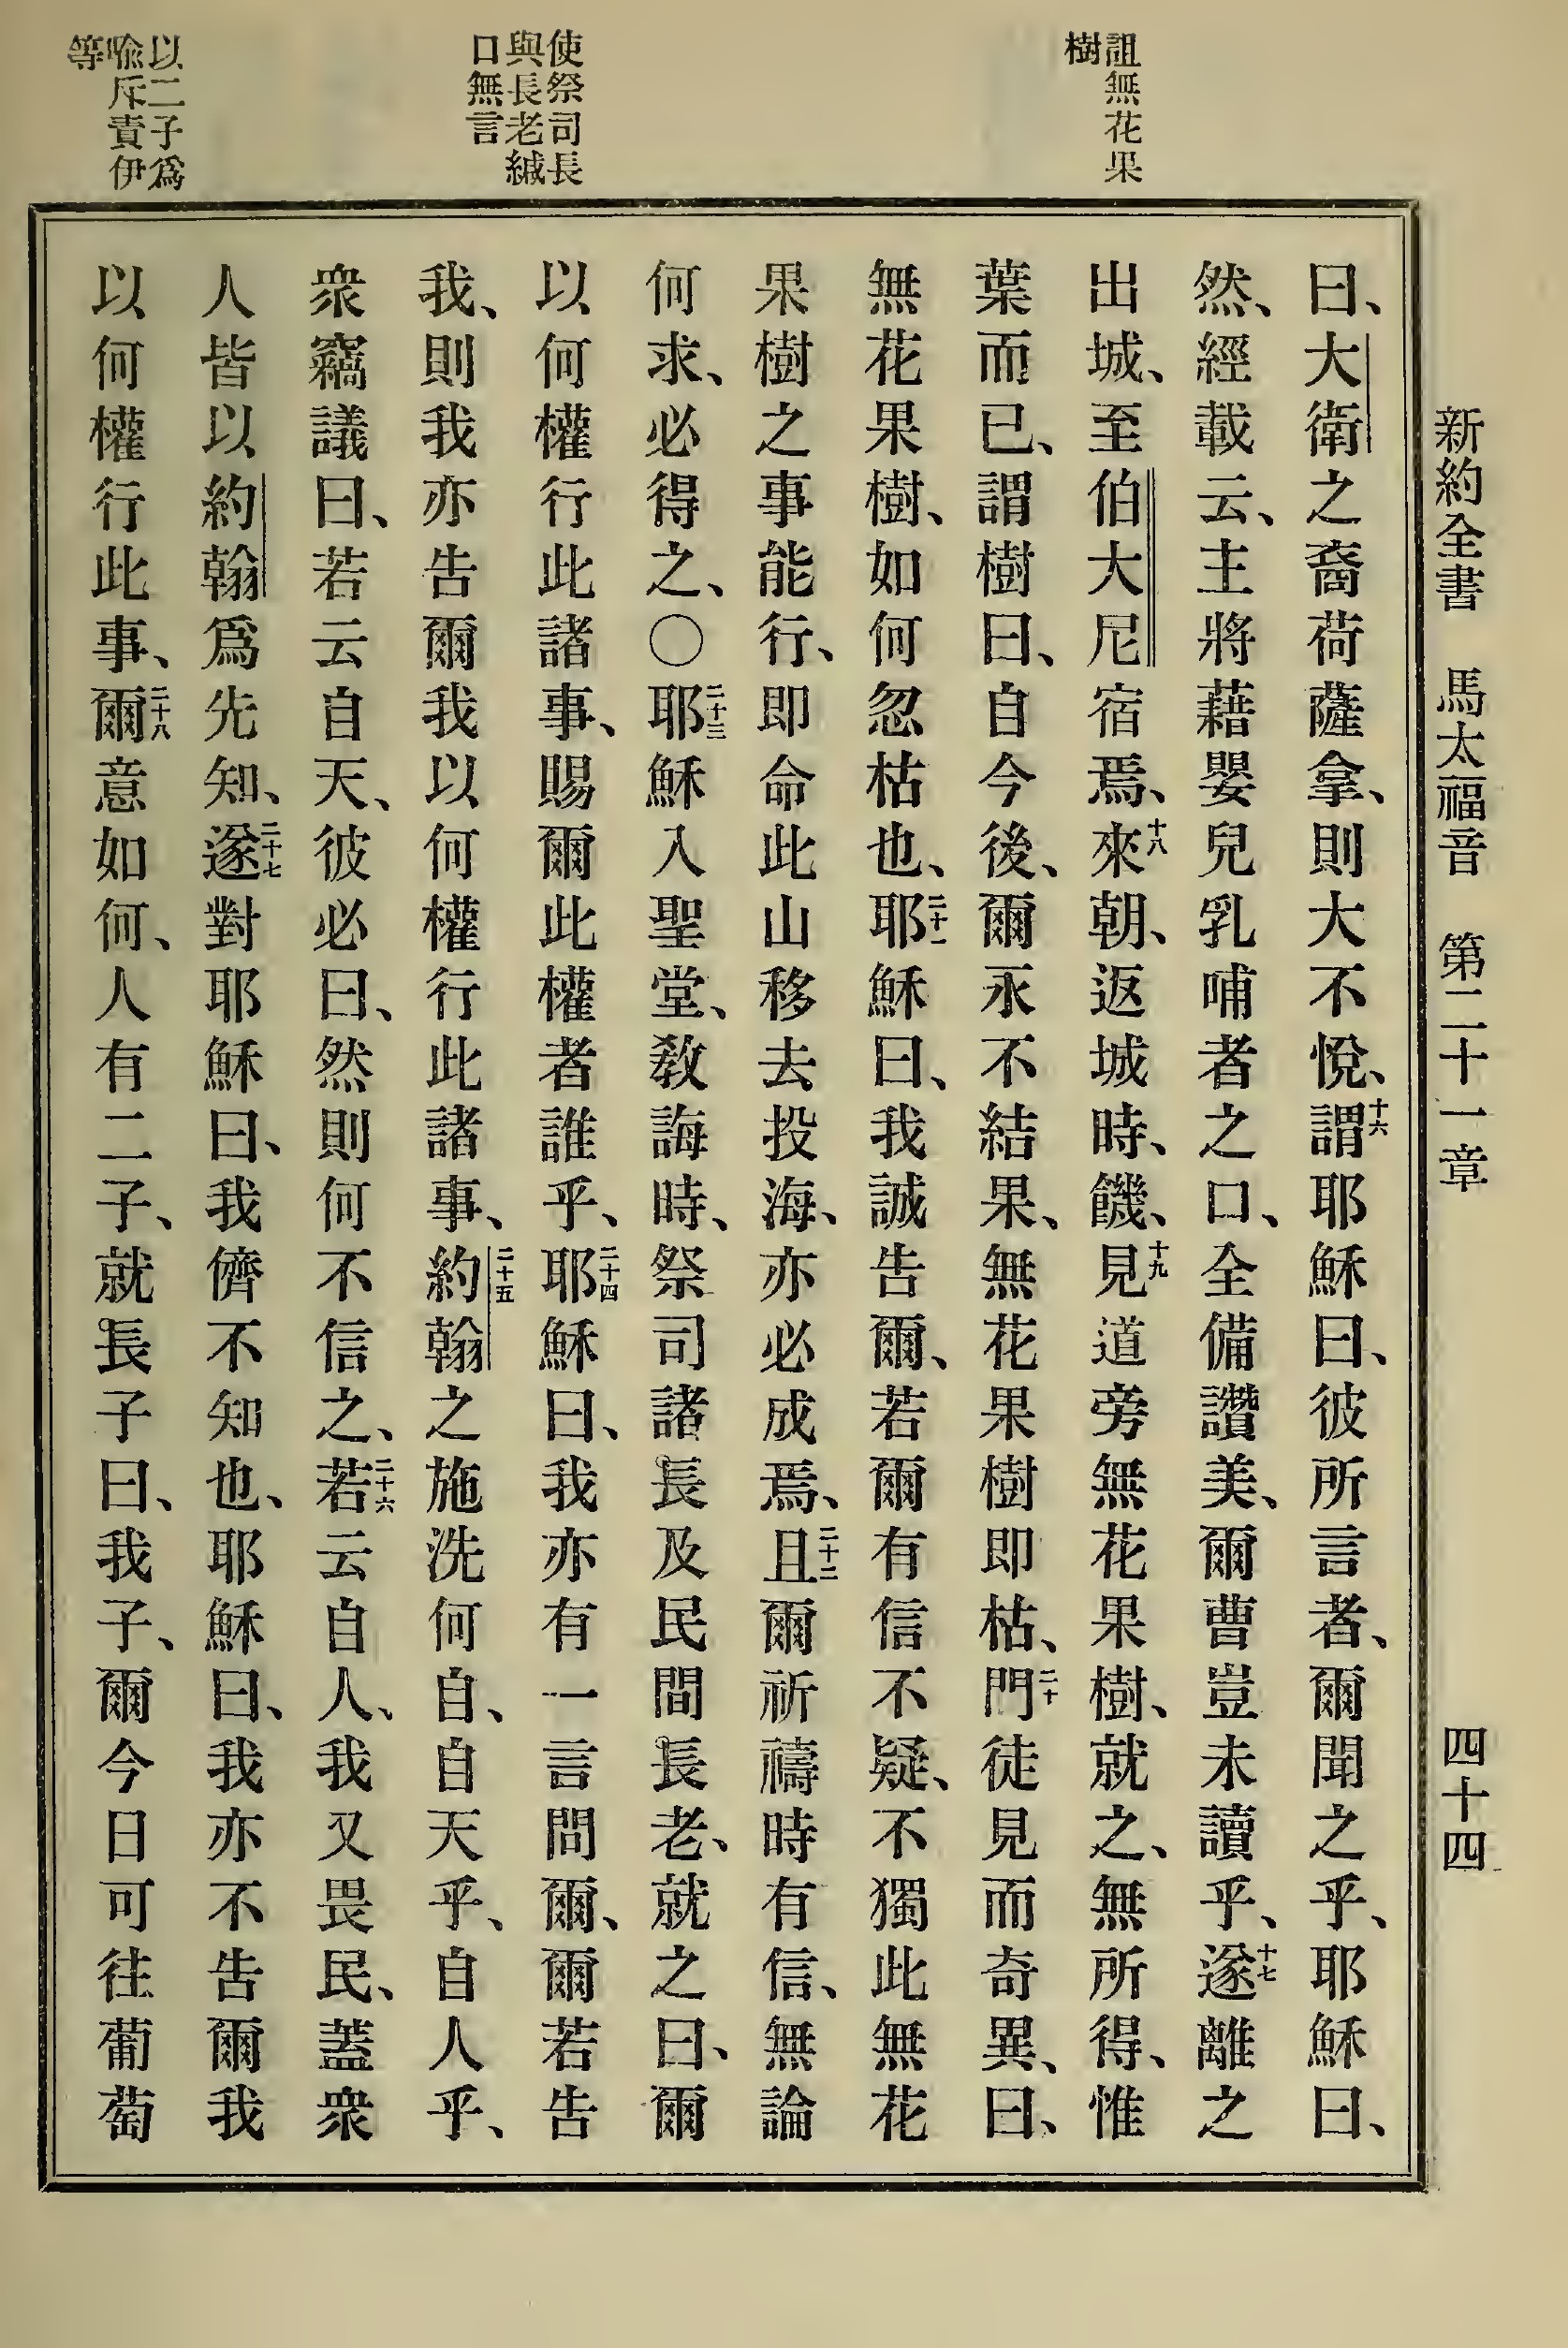 新約全書　馬太福音　第二十一章　四十四
詛無花果
樹
使祭司長
與長老緘
口無言
以二子爲
喩斥責伊
等
曰、大衛之裔荷薩拿、則大不悅、十六謂耶穌曰、彼所言者、爾聞之乎、耶穌曰、
然、經載云、主將藉嬰兒乳哺者之口、全備讚美、爾曹豈未讀乎、十七遂離之
出城、至伯大尼宿焉、十八來朝、返城時、饑、十九見道旁無花果樹、就之、無所得、惟
葉而已、謂樹曰、自今後、爾永不結果、無花果樹即枯、二十門徒見而奇異、曰、
無花果樹、如何忽枯也、二十一耶穌曰、我誠告爾、若爾有信不疑、不獨此無花
果樹之事能行、即命此山移去投海、亦必成焉、二十二且爾祈禱時有信、無論
何求、必得之、〇二十三耶穌入聖堂、敎誨時、祭司諸長及民間長老、就之曰、爾
以何權行此諸事、賜爾此權者誰乎、二十四耶穌曰、我亦有一言問爾、爾若告
我、則我亦告爾我以何權行此諸事、二十五約翰之施洗何自、自天乎、自人乎、
衆竊議曰、若云自天、彼必曰、然則何不信之、二十六若云自人、我又畏民、蓋衆
人皆以約翰爲先知、二十七遂對耶穌曰、我儕不知也、耶穌曰、我亦不告爾我
以何權行此事、二十八爾意如何、人有二子、就長子曰、我子、爾今日可往葡萄